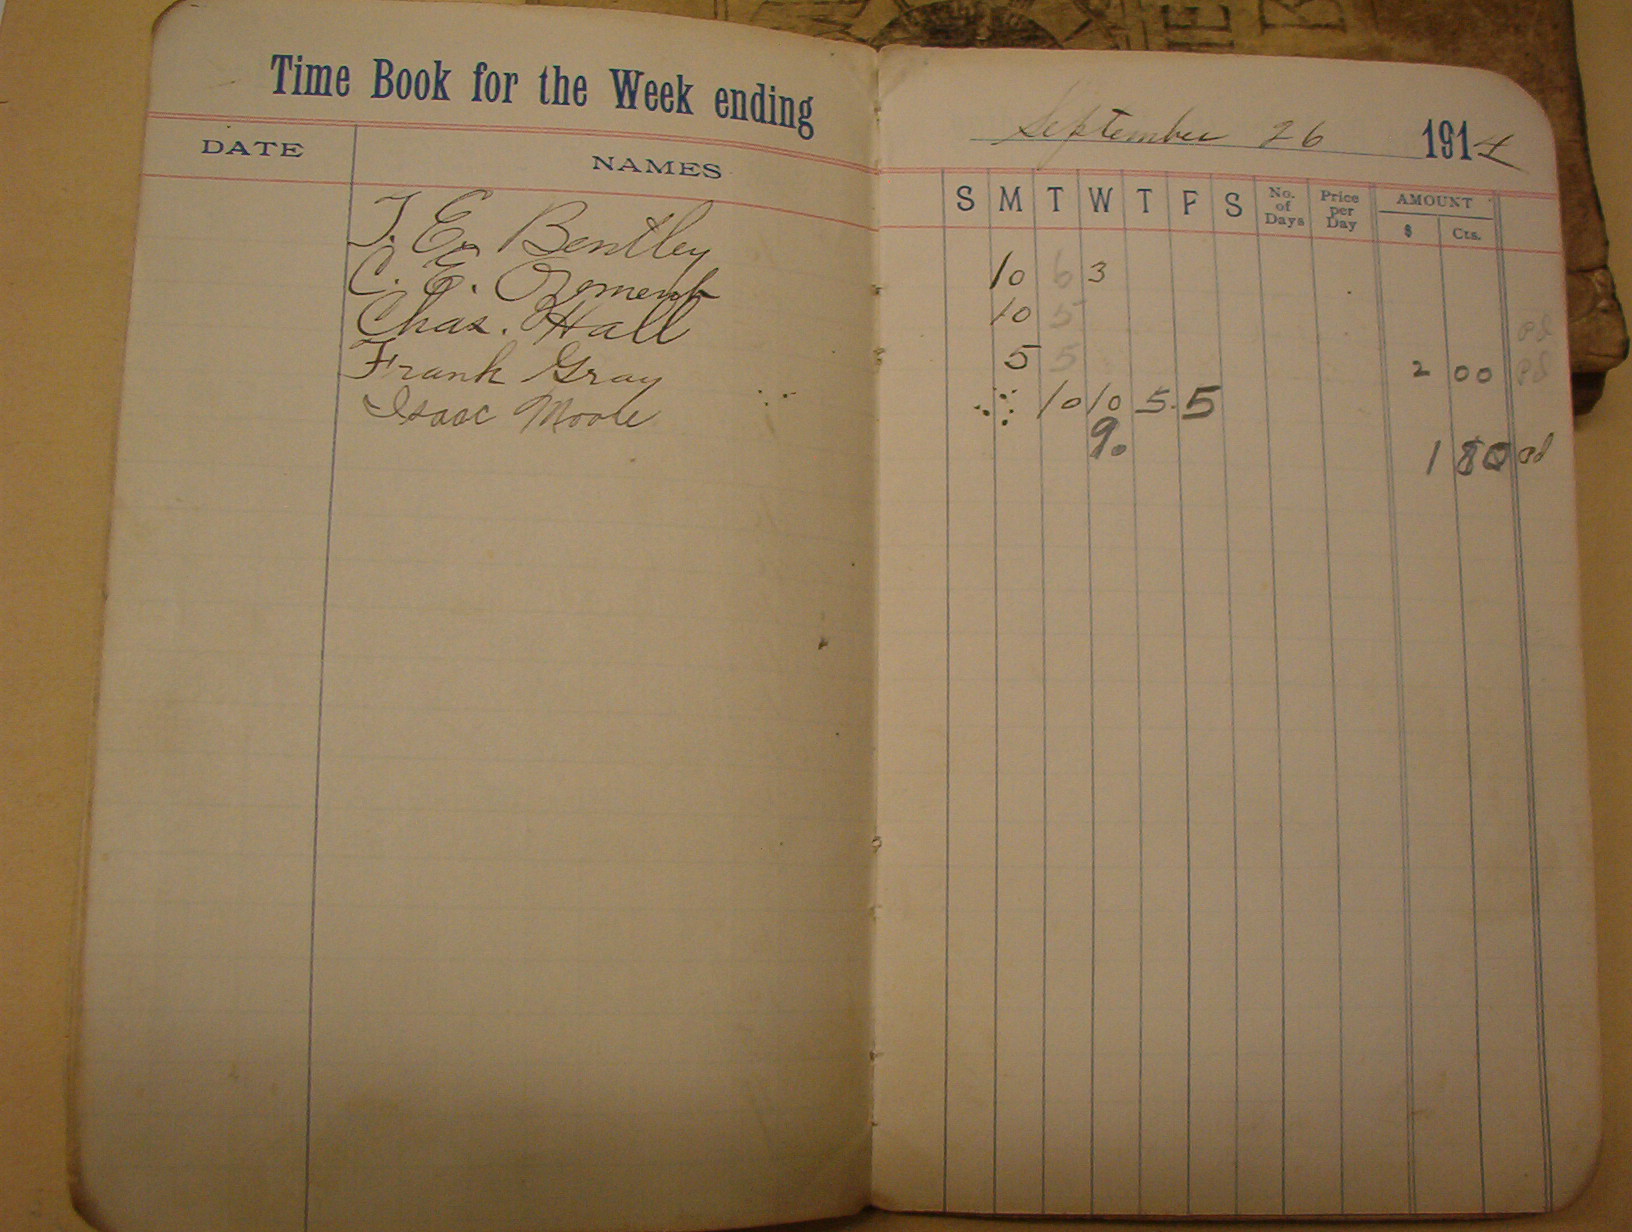 Time Book for the Week ending
September 26 1914
DATE NAMES
S M T W T F S No. of Days Price per Day AMOUNT
$ Cts.
T. E. Bentley 10 6 3
C. E. Ozment 10 5 pd
Chas. Hall 5 5 2 00 pd
Frank Gray 10 10 5 5
Isaac Moore 9 1 80 pd